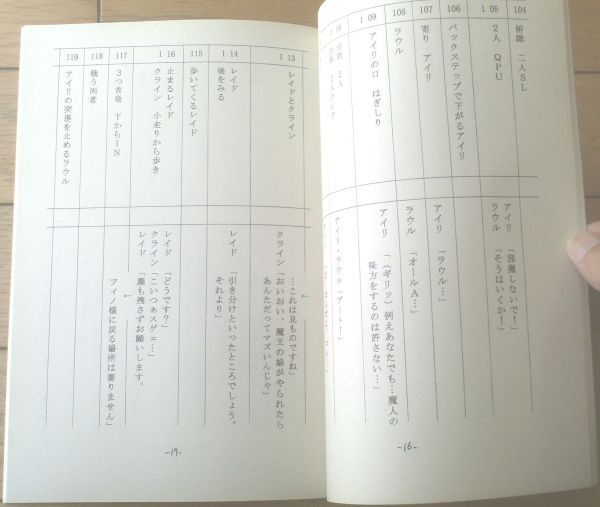 104
俯瞰 二人SL
1 05
2人 QPU
アイリ「邪魔しないで！」
ラウル「そうはいくか！」
106
バックステップで下がるアイリ
107
寄り アイリ
アイリ「ラウル…」
108
ラウル
ラウル「オールA…」
1 09
アイリの口 はぎしり
アイリ「（ギリッ）例えあなたでも…魔人の
味方をするのは許さない…」
1 10
分割 2人
アイリ・ラウル「ブート！」
-16-
1 13
レイドとクライン
…これは見ものですね」
クライン「おいおい、魔王の娘がやられたら
あんただってマズいんじゃ」
1 14
レイド
後をみる
レイド「引き分けといったところでしょう。
それより」
115
歩いてくるレイド
1 16
止まるレイド
クライン 小走りから歩き
レイド「どうです？」
クライン「こいつぁスゲェ…」
レイド「塵も残さずお願いします。
117
3つ首竜 下からIN
フィノ様に戻る場所は要りません」
118
戦う両者
119
アイリの突進を止めるラウル
-17-